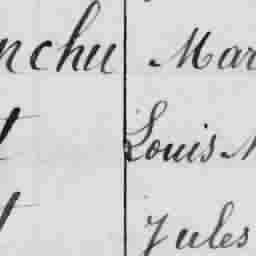 nchu Mar
t Louis M
t Jules